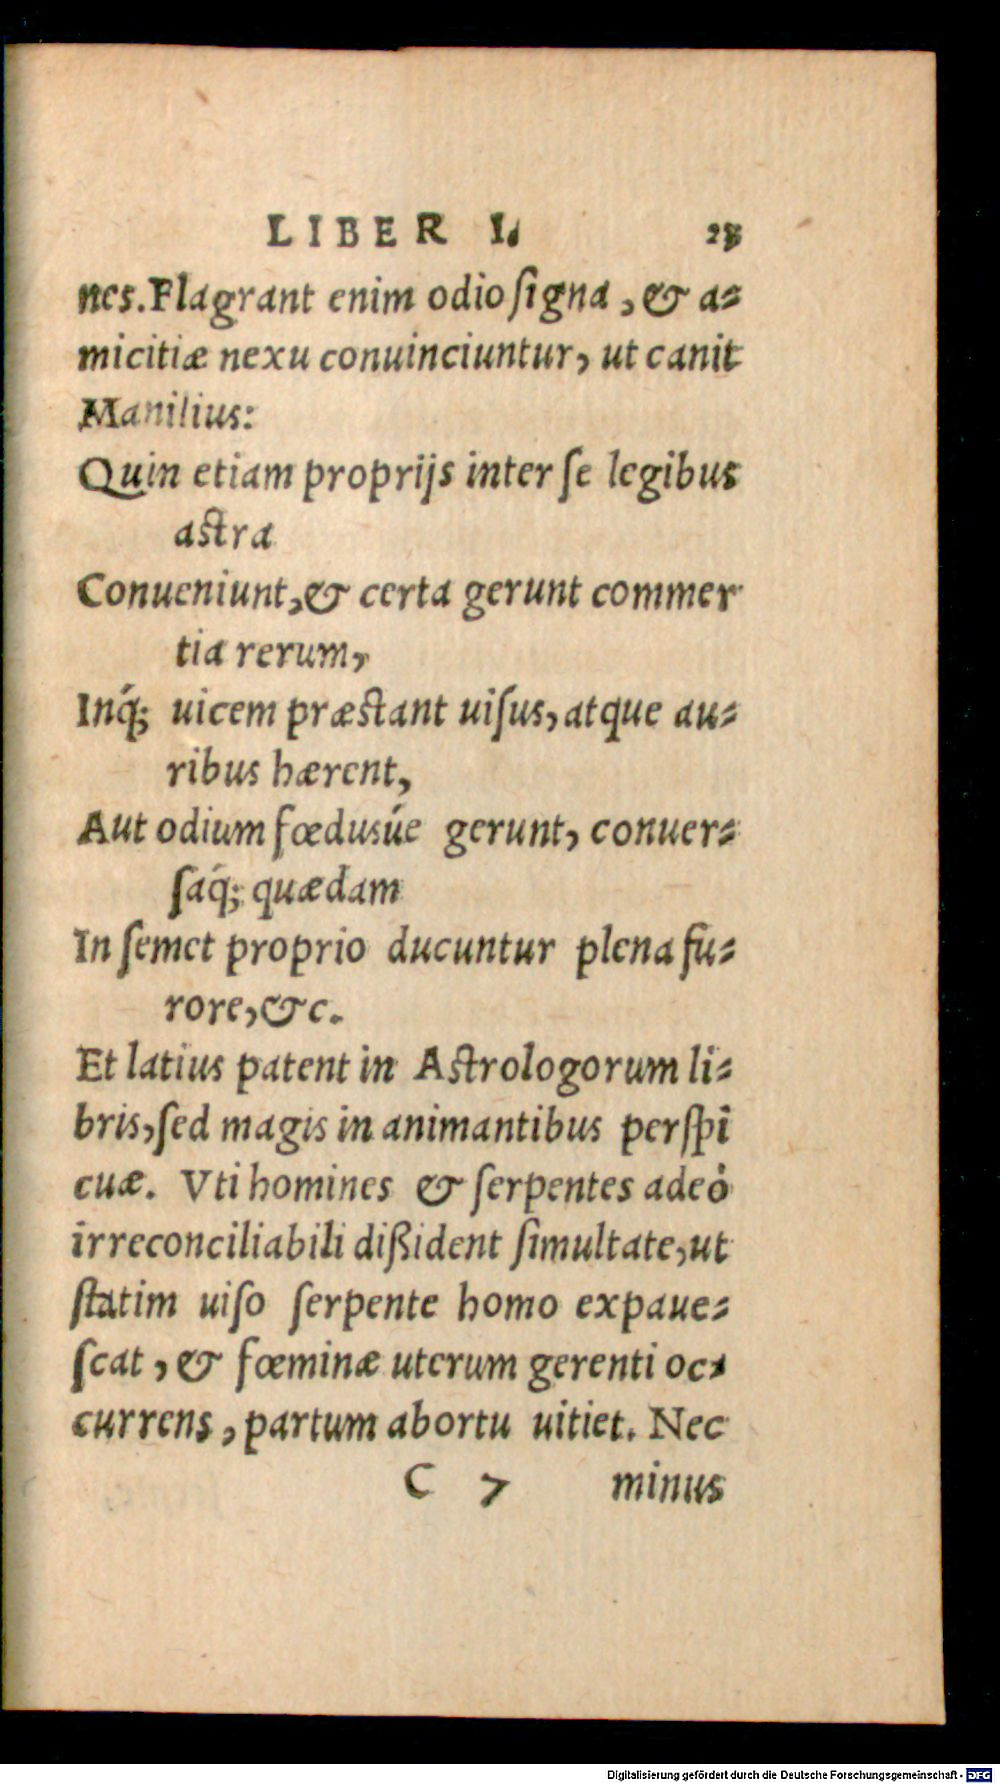 LIBER I. 28
nes. Flagrant enim odio ſigna, & a-
micitiæ nexu conuinciuntur, ut canit
Manilius:
Quin etiam proprijs inter ſe legibus
aſtra
Conueniunt, & certa gerunt commer
tia rerum,
Inq́; uicem præſtant uiſus, atque au-
ribus hærent,
Aut odium fœdusúe gerunt, conuer-
ſaq́; quædam
In ſemet proprio ducuntur plena fu-
rore, &c.
Et latius patent in Aſtrologorum li-
bris, ſed magis in animantibus perſpi
cuæ. Vti homines & ſerpentes adeò
irreconciliabili dißident ſimultate, ut
ſtatim uiſo ſerpente homo expaue-
ſcat, & fœminæ uterum gerenti oc-
currens, partum abortu uitiet. Nec
C 7 minus
Digitalisierung gefördert durch die Deutsche Forschungsgemeinschaft - DFG